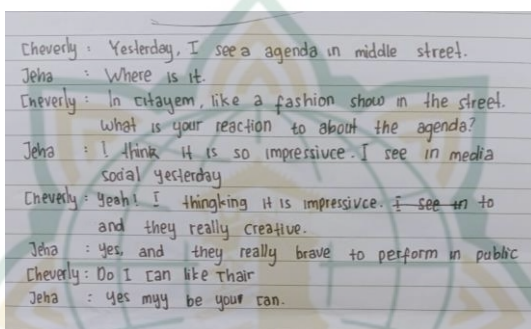 Cheverly : Yesterday, I see a agenda in middle street.
Jeha : Where is it.
Cheverly : In citayem, like a fashion show in the street.
what is your reaction to about the agenda?
Jeha : I think it is so impressivce. I see in media
social yesterday
Cheverly : Yeah! I thingking it is impressivce. I see in to
and they really creative.
Jeha : Yes, and they really brave to perform in public
Cheverly : Do I can like Thair
Jeha : Yes myy be your can.